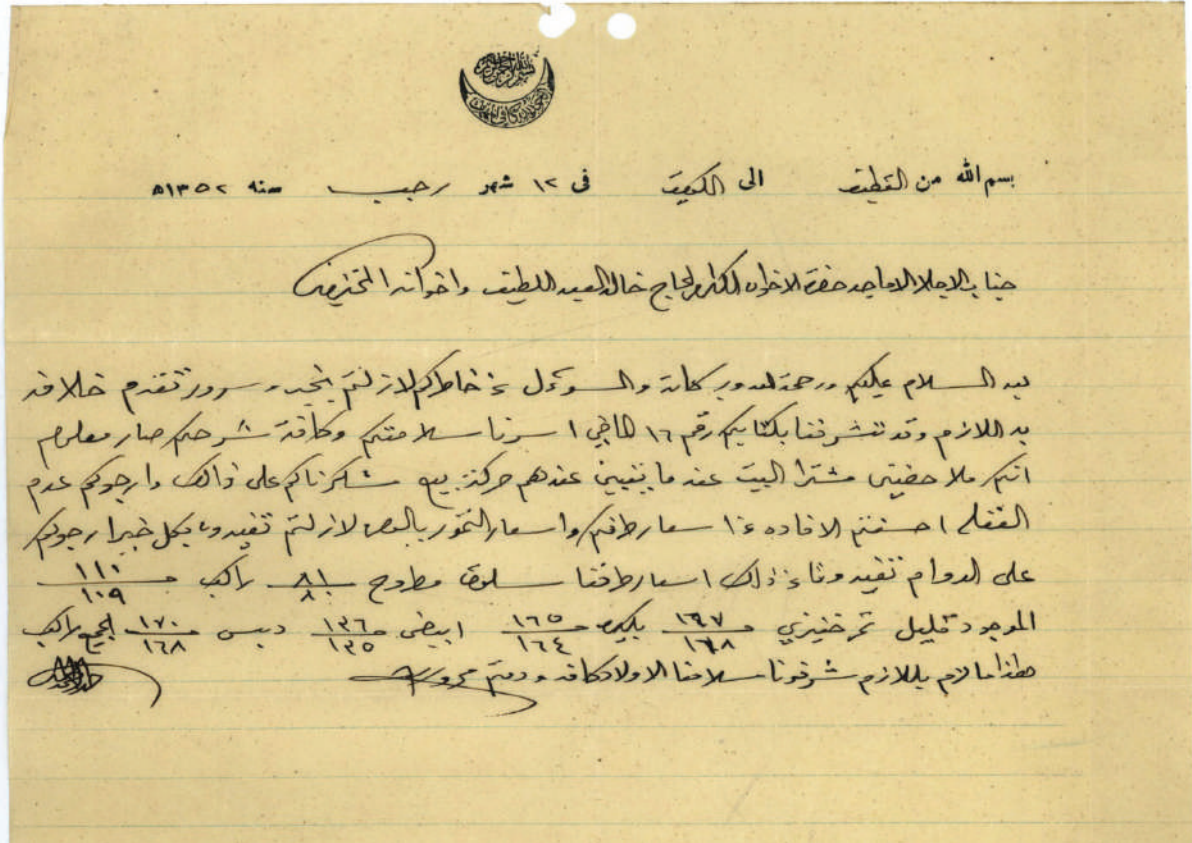 بسم الله من القطيف الى الكويت في ١٢ شهر رجب سنه ١٣٥٢ه
جناب الاجلا الاماجد حضرة الاخوان الكرام الحاج خالد العبد اللطيف واخوانه المحترمين
بعد السلام عليكم ورحمة الله وبركاته والسوءل عن خاطركم لازلتم بخير وسرور تقدم خلافه
به اللازم وقد تشرفنا بكتابكم رقم ١٦ الماضي اسرنا سلامتكم وكافة شرحكم صار معلوم
انكم ملاحضين مشترا البيت عند ما يتبين عندهم حركة بيع شكرناكم على ذالك وارجوكم عدم
الغفله احسنتم الافاده عن اسعار طرفكم واسعار التمور بالبصره لازلتم تفيدونا بكل خير ارجوكم
على الدوام تفيدونا عن ذلك اسعار طرفنا سلوق مطروح ٨١ ٨٠ راكب ١١٠ ١٠٩
الموجود قليل تمر خنيزي ١٦٨ بكيره ١٦٥ ١٦٤ ابيض ١٣٦ ١٣٥ دبس ١٧٠ ١٦٨ الجميع راكب
هذا ما لزم بللازم شرفونا سلامنا الاولاد كافه ودمتم محروسين